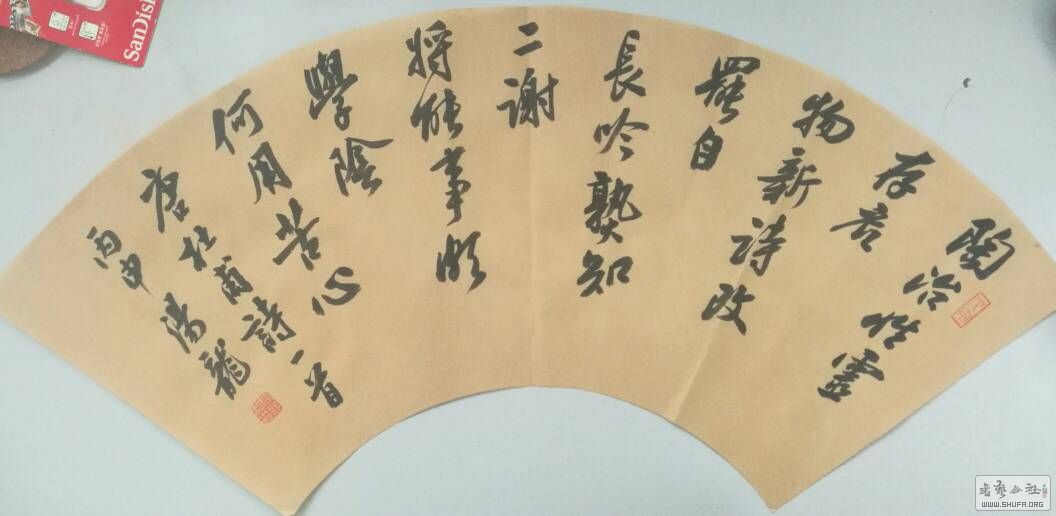 陶冶性靈
存底
物新詩改
罷自
長吟熟知
二謝
将能事頗
學陰
何用苦心
唐杜甫詩一首
丙申湯龍
SanDis
书艺公社
WWW.SHUFA.ORG